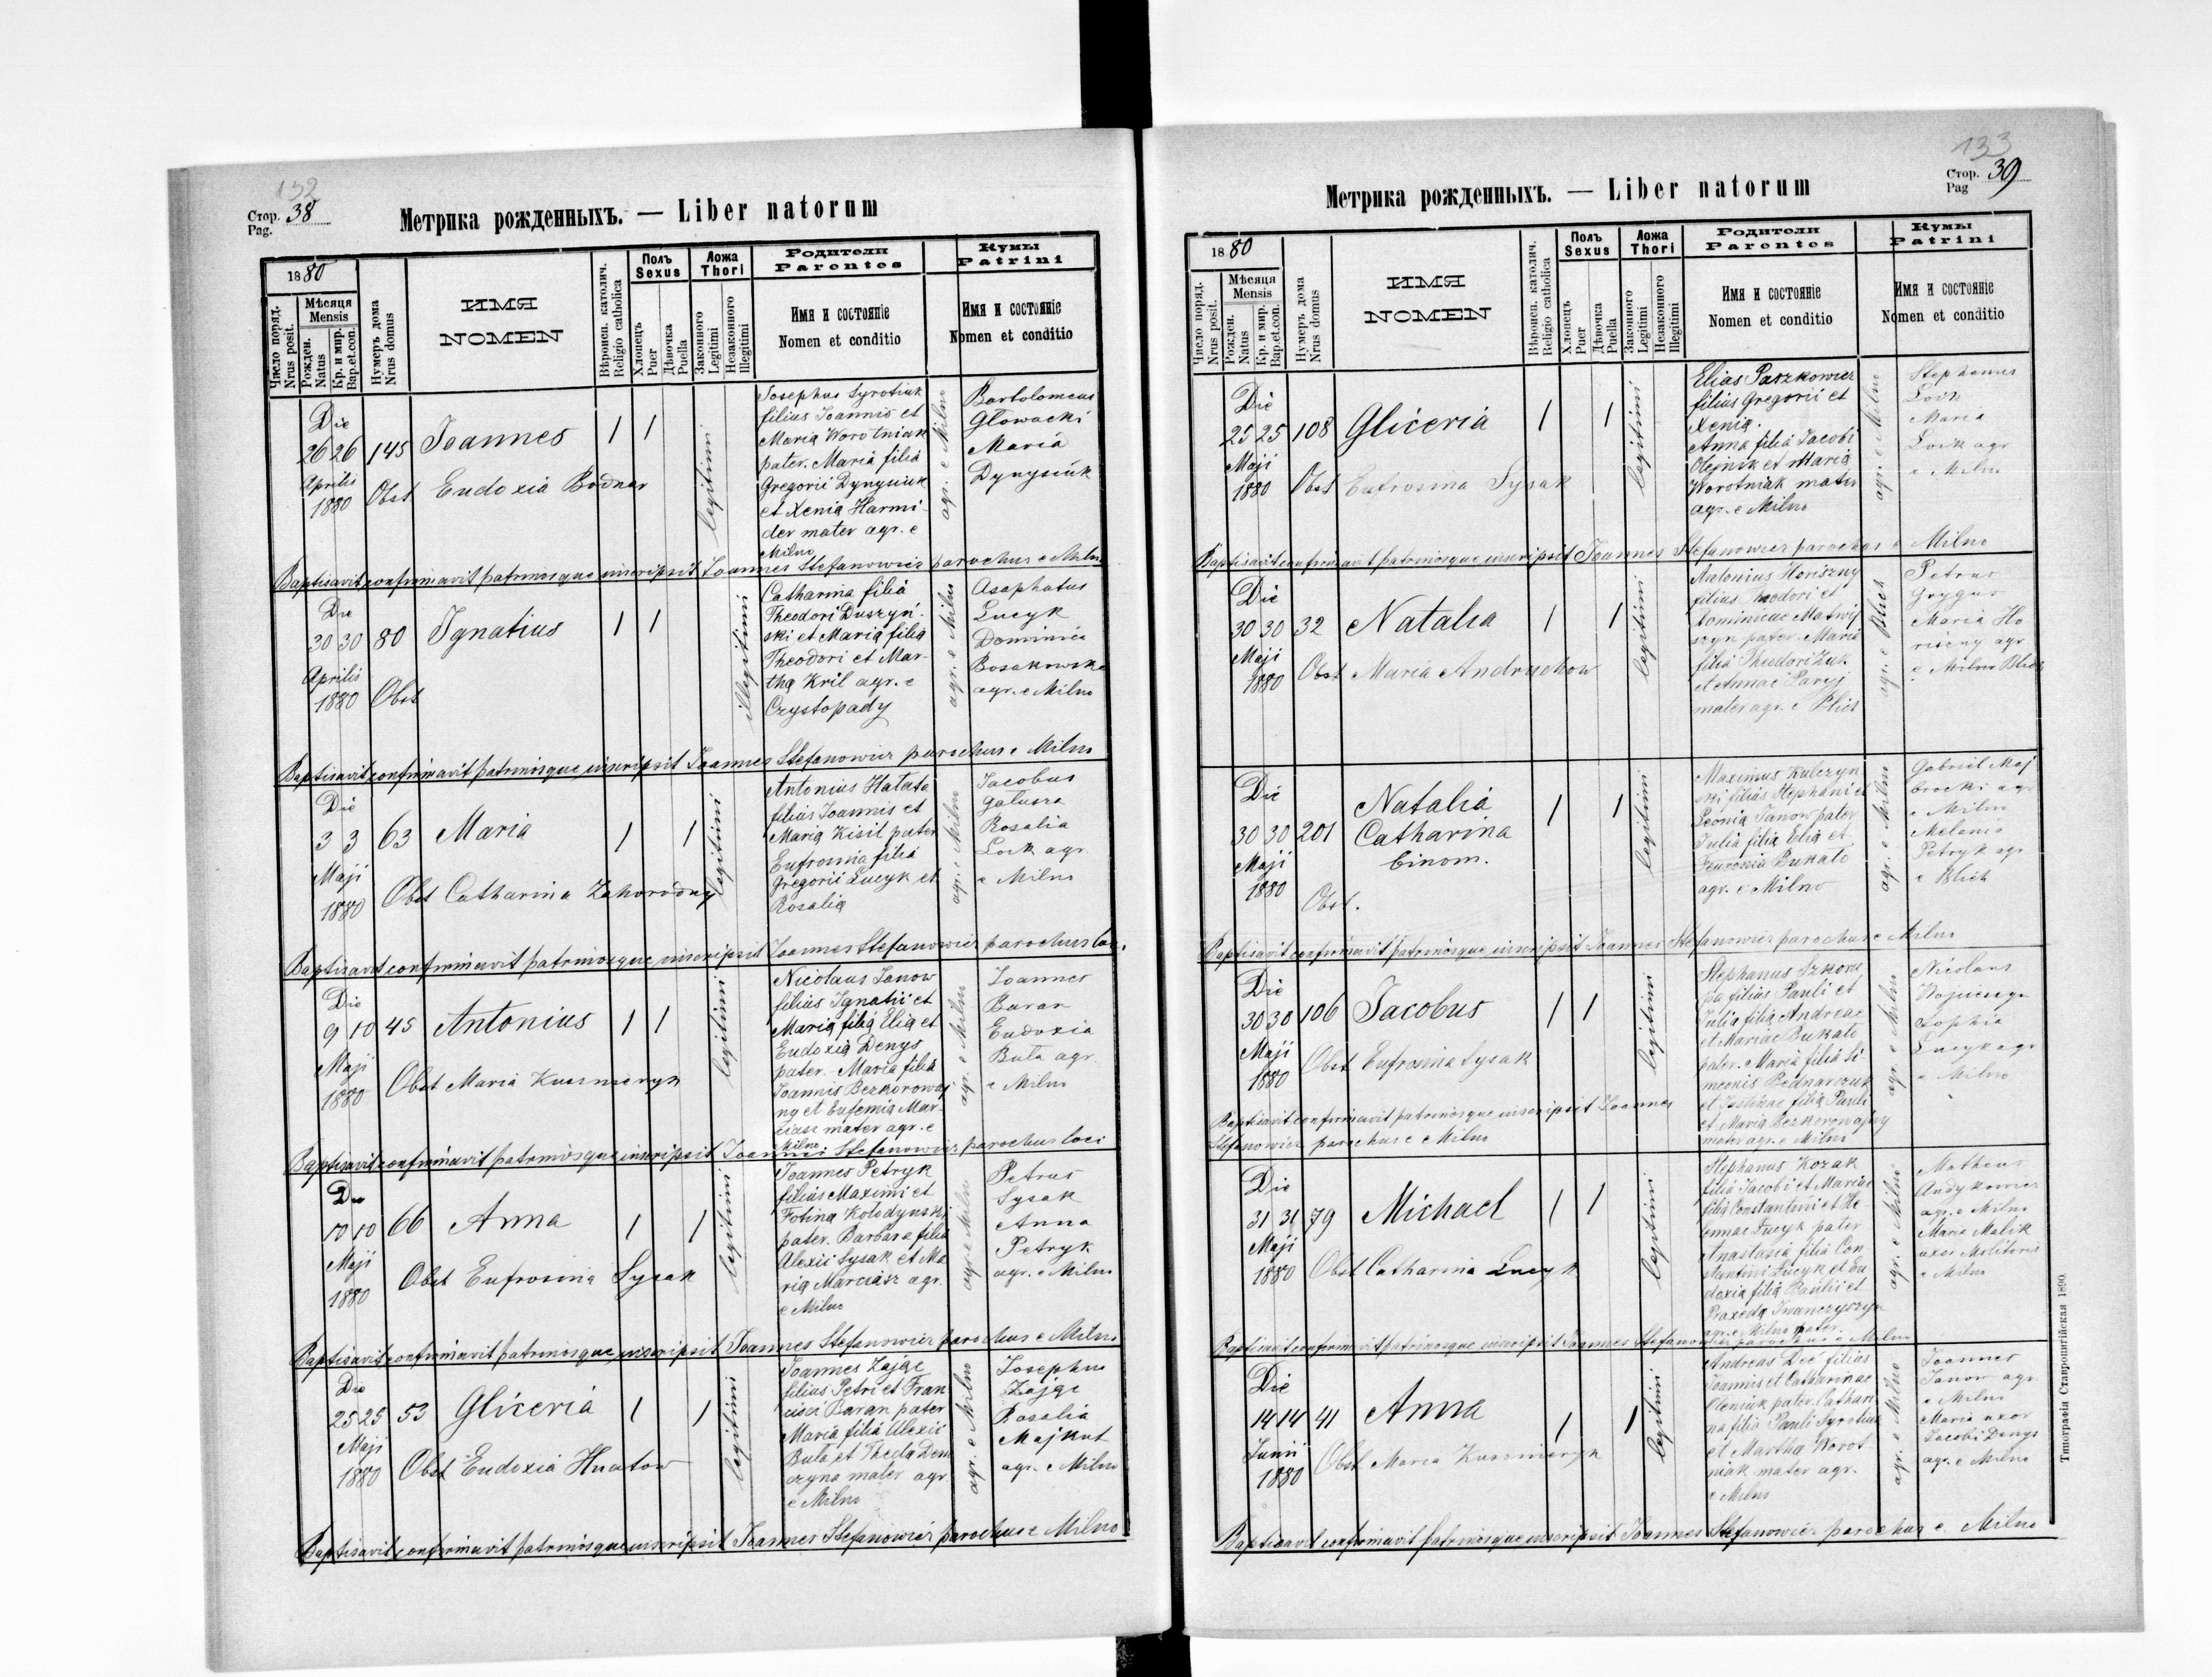 132
Стор. 38
Pag.
Метрика рожденныхъ. — Liber natorum
1880
Число поряд.
Nrus posit.
Мѣсяця
Mensis
Рожден.
Natus
Кр. и мир.
Bap.et.con.
Нумеръ дома
Nrus domus
ИМЯ
NOMEN
Вѣроисп. католич.
Religio catholica
Полъ
Sexus
Хлопецъ
Puer
Дѣвочка
Puella
Ложа
Thori
Законного
Legitimi
Незаконного
Illegitimi
Родители
Parentes
Имя и состояніе
Nomen et conditio
Кумы
Patrini
Имя и состояніе
Nomen et conditio
Die
26 26 145 Joannes 1 1
Aprilis
1880 Obst Eudoxia Bodnar
legitimi
Josephus Syrotiuk
filius Joannis et
Maria Worotniak
pater. Maria filia
Gregorii Dynysiuk
et Xenia Harmi-
der mater agr. e
Milno
agr. e Milno
Bartolomeus
Głowacki
Maria
Dynysiuk
Baptisavit confirmavit patrinosque inscripsit Joannes Stefanowicz parochus e Milno
Die
30 30 80 Ignatius 1 1
Aprilis
1880 Obst
illegitimi
Catharina filia
Theodori Duszyń-
ski et Maria filia
Theodori et Mar-
tha Kril agr. e
Czystopady
agr. e Milno
Asaphatus
Lucyk
Dominica
Bosakowska
agr. e Milno
Baptisavit confirmavit patrinosque inscripsit Joannes Stefanowicz parochus e Milno
Die
3 3 63 Maria 1 1
Maji
1880 Obst Catharina Zahorodny
legitimi
Antonius Hałata
filius Joannis et
Maria Kisil pater
Eufrosina filia
Gregorii Lucyk et
Rosalia
agr. e Milno
Jacobus
Gałusza
Rosalia
agr.
e Milno
Baptisavit confirmavit patrinosque inscripsit Joannes Stefanowicz parochus loci
Die
9 10 45 Antonius 1 1
Maji
1880 Obst Maria Kuszneryk
legitimi
Nicolaus Janow
filius Ignatii et
Maria filia Elia et
Eudoxia Denys
pater. Maria filia
Joannis Bezkorowaj
ny et Eufemia Mar-
ciasz mater agr. e
Milno
agr. e Milno
Joannes
Baran
Eudoxia
Buła agr.
e Milno
Baptisavit confirmavit patrinosque inscripsit Joannes Stefanowicz parochus loci
Die
10 10 66 Anna 1 1
Maji
1880 Obst Eufrosina Sysak
legitimi
Joannes Petryk
filius Maximi et
Fotina Kołodynski
pater. Barbara filia
Alexii Sysak et Ma
ria Marciasz agr.
e Milno
agr. e Milno
Petrus
Sysak
Anna
Petryk
agr. e Milno
Baptisavit confirmavit patrinosque inscripsit Joannes Stefanowicz parochus e Milno
Die
25 25 53 Gliceria 1 1
Maji
1880 Obst Eudoxia Hnatow
legitimi
Joannes Zajge
filius Petri et Fran
cisci Baran pater
Maria filia Alexii
Buła et Thecla Dem
czyna mater agr
e Milno
agr. e Milno
Josephus
Zajge
Rosalia
Majkut
agr. e Milno
Baptisavit confirmavit patrinosque inscripsit Joannes Stefanowicz parochus e Milno
133
Стор. 39
Pag
Метрика рожденныхъ. — Liber natorum
1880
Число поряд.
Nrus posit.
Мѣсяця
Mensis
Рожден.
Natus
Кр. и мир.
Bap.et.con.
Нумеръ дома
Nrus domus
ИМЯ
NOMEN
Вѣроисп. католич.
Religio catholica
Полъ
Sexus
Хлопецъ
Puer
Дѣвочка
Puella
Ложа
Thori
Законного
Legitimi
Незаконного
Illegitimi
Родители
Parentes
Имя и состояніе
Nomen et conditio
Кумы
Patrini
Имя и состояніе
Nomen et conditio
Die
25 25 108 Gliceria 1 1
Maji
1880 Obst Eufrosina Sysak
legitimi
Elias Paszkowicz
filius Gregorii et
Xenia.
Anna filia Jacobi
Olejnik et Maria
Worotniak mater
agr. e Milno
agr. e Milno
Stephanus
Maria
agr
e Milno
Baptisavit confirmavit patrinosque inscripsit Joannes Stefanowicz parochus e Milno
Die
30 30 32 Natalia 1 1
Maji
1880 Obst Maria Andruchow
legitimi
Antonius Horiszny
filius Theodori et
Dominicae Matwij
szyn pater. Maria
filia Theodori Żuk
et Annae Paryj
mater agr. e Blich
agr. e Blich
Petrus
Grygus
Maria Ho
riszny agr
e Milno Blich
Die
30 30 201 Natalia 1 1
Catharina
binom.
Maji
1880 Obst.
legitimi
Maximus Kulczyn
ski filius Stephani et
Leonia Janow pater
Julia filia Elia et
Bukało
agr. e Milno
agr. e Milno
Gabriel Maj
brocki agr
e Milno
Melania
Petryk agr
e Blich
Baptisavit confirmavit patrinosque inscripsit Joannes Stefanowicz parochus e Milno
Die
30 30 106 Jacobus 1 1
Maji
1880 Obst Eufrosina Sysak
legitimi
Stephanus Szkoru
pa filius Pauli et
Julia filia Andreae
et Mariae Bukało
pater. Maria filia Si
meonis Bednarczuk
et Justinae filia Pauli
et Maria Bezkorowajny
mater agr. e Milno
agr. e Milno
Nicolaus
Sophia
Lucyk agr
e Milno
Baptisavit confirmavit patrinosque inscripsit Joannes
Stefanowicz parochus e Milno
Die
31 31 79 Michael 1 1
Maji
1880 Obst Catharina Lucyk
legitimi
Stephanus Kozak
filius Jacobi et Mariae
filia Constantini et He
lennae Lucyk pater
Anastasia filia Con
stantini Lucyk et Eu
doxia filia Basilii et
Praxeda Iwanczyszyn
agr. e Milno mater.
agr. e Milno
Matheus
Andykowicz
agr. e Milno
Maria Malik
uxor Molitoris
e Milno
Baptisavit confirmavit patrinosque inscripsit Joannes Stefanowicz parochus e Milno
Die
14 14 41 Anna 1 1
Junii
1880 Obst Maria Kuszneryk
legitimi
Andreas Deć filius
Joannis et Catharinae
Oleniuk pater. Cathari
na filia Pauli Syrotiuk
et Martha Worot
niak mater agr.
e Milno
agr. e Milno
Joannes
Janow agr
e Milno
Maria uxor
Jacobi Denys
agr. e Milno
Baptisavit confirmavit patrinosque inscripsit Joannes Stefanowicz parochus e Milno
Типографія Ставропигійская 1890.